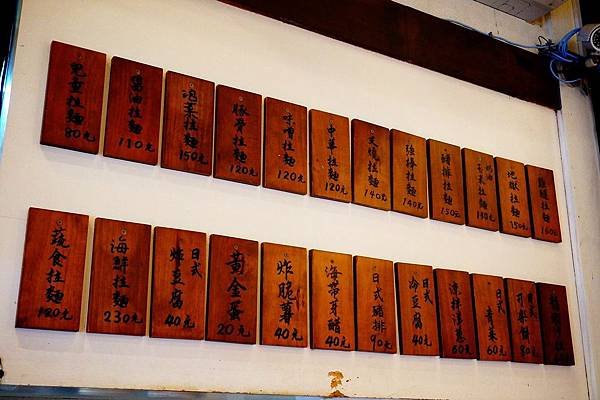 兒童拉麵 80元
醬油拉麵 110元
泡菜拉麵 150元
豚骨拉麵 120元
味噌拉麵 120元
中華拉麵 120元
叉燒拉麵 140元
強棒拉麵 140元
豬排拉麵 150元
拉麵 130元
地獄拉麵 150元
拉麵 160元
蔬食拉麵 120元
海鮮拉麵 230元
日式炸豆腐 40元
黃金蛋 20元
炸脆薯 40元
海帶芽醋 40元
日式豬排 90元
日式冷豆腐 40元
涼拌洋蔥 60元
日式青菜 60元
日式可樂餅